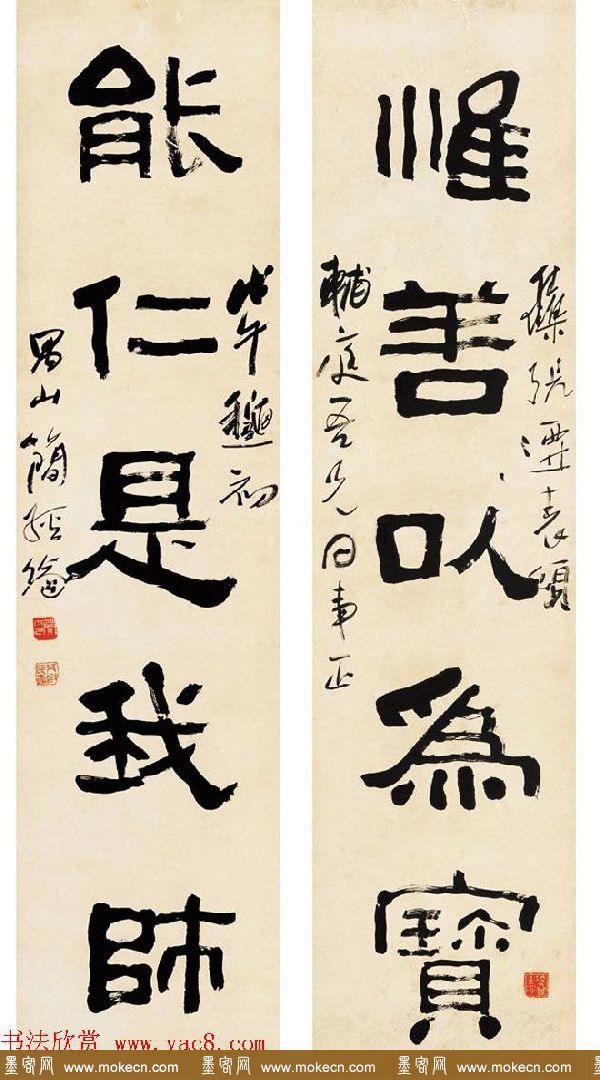 集張遷表頌
惟善以爲寶
輔庭吾兄同事正
戊午穐初
能仁是我師
禺山簡經綸
书法欣赏 www.yac8.com
墨客网 www.mokecn.com 墨客网 www.mokecn.com 墨客网 www.mokecn.com